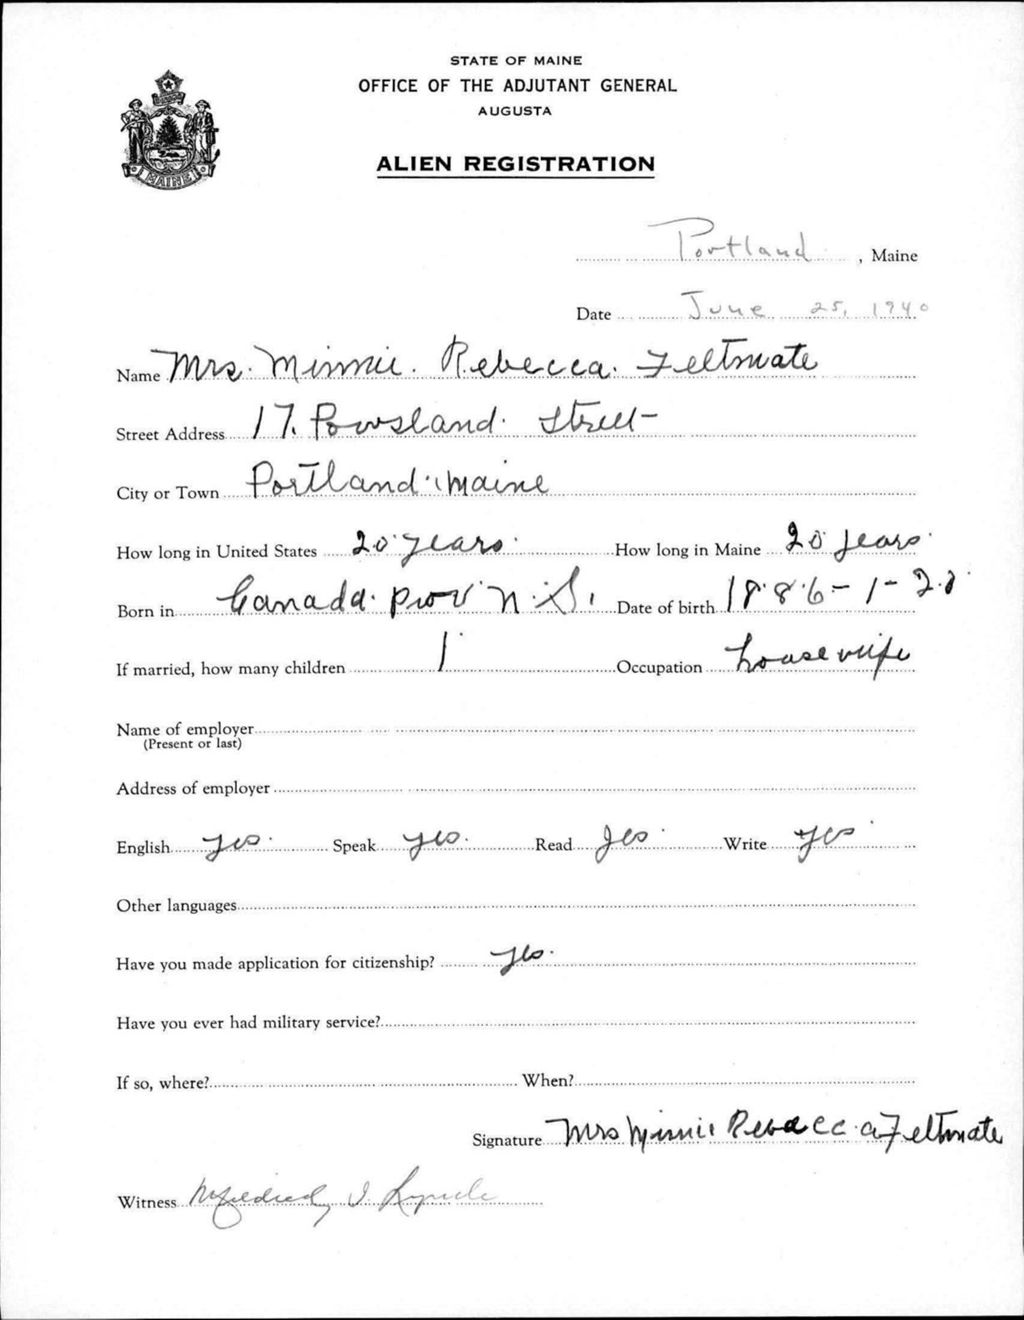 STATE OF MAINE
OFFICE OF THE ADJUTANT GENERAL
AUGUSTA
ALIEN REGISTRATION
MAINE
Portland, Maine
Date June 25, 1940
Name Mrs. Minnie. Rebecca. Feltmate
Street Address 17. Powsland. Street
City or Town Portland. Maine
How long in United States 20 years. How long in Maine 20 years.
Born in Canada. Prov N. S. Date of birth 1886-1-22
If married, how many children 1 Occupation housewife
Name of employer
(Present or last)
Address of employer
English yes. Speak yes. Read yes. Write yes.
Other languages
Have you made application for citizenship? yes.
Have you ever had military service?
If so, where? When?
Signature Mrs Minnie Rebecca Feltmate
Witness Mildred I.